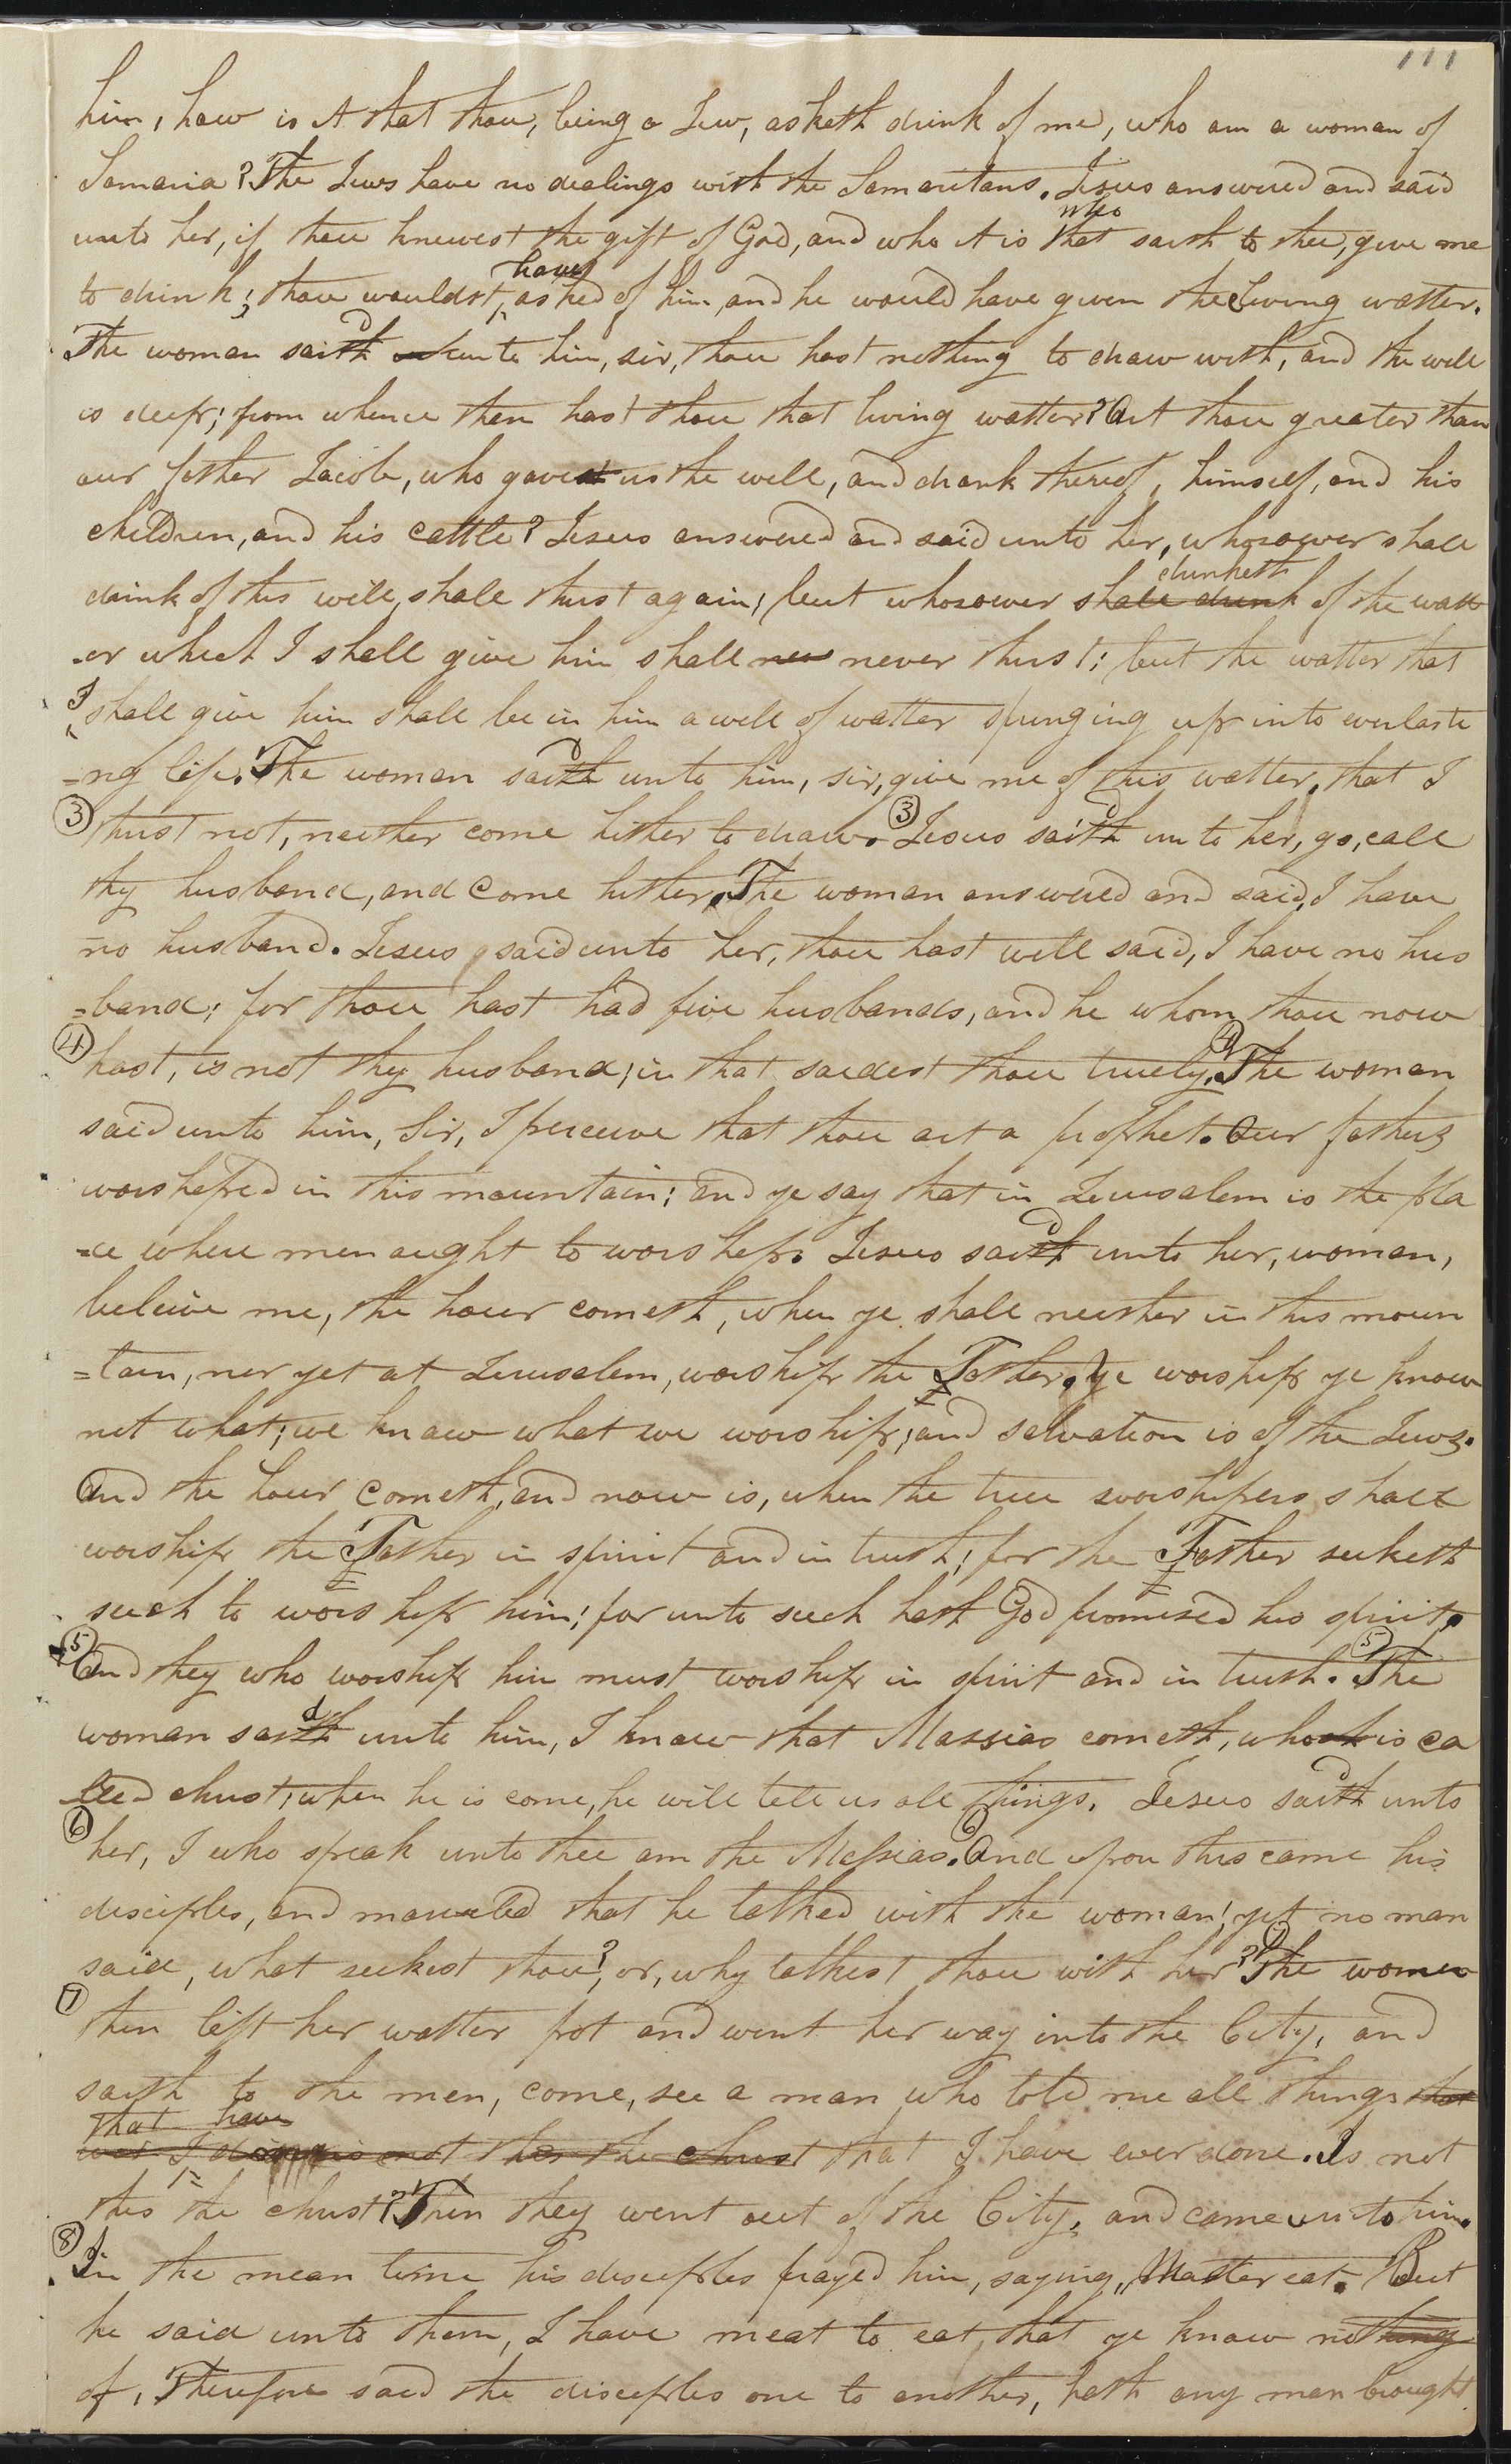 111
him, how is it that thou, being a Jew, asketh drink of me, who am a woman of
Samaria? The Jews have no dealings with the Samaritans. Jesus answered and said
who
unto her, if thou knewest the gift of God, and who it is that saith to thee, give me
have
to drink; thou wouldst, asked of him, and he would have given thee living watter.
d
The woman saith unto him, sir, thou hast nothing to draw with, and the well
is deep; from whence then hast thou that living watter? Art thou greater than
our father Jacob, who gavest us the well, and drank thereof, himself, and his
children, and his cattle? Jesus answered and said unto her, whosoever shall
drinketh
drink of this well, shall thirst again; but whosoever shall drink of the watt
-er which I shall give him shall nev never thirst; but the watter that
I shall give him shall be in him a well of watter springing up into everlasti
d
-ng life. The woman saith unto him, sir, give me of this watter, that I
d
③ thirst not, neither come hither to draw. ③ Jesus saith unto her, go, call
thy husband, and come hither. The woman answered and said, I have
no husband. Jesus said unto her, thou hast well said, I have no hus
=band; for thou hast had five husbands, and he whom thou now
④ hast, is not thy husband; in that saidest thou truely. ④ The woman
said unto him, Sir, I perceive that thou art a prophet. Our fathers
worsheped in this mountain; and ye say that in Jerusalem is the pla
d
-ce where men aught to worshep. Jesus saith unto her, woman,
beleive me, the hour cometh, when ye shall neither in this moun
=tain, ner yet at Jerusalem, worship the Father. Ye worship ye know
not what; we know what we worship; and salvation is of the Jews.
And the hour cometh, and now is, when the true worshipers shall
worship the Father in spirit and in truth; for the Father seeketh
such to worship him; for unto such hath God promised his spirit.
⑤ And they who worship him must worship in spirit and in truth. ⑤ The
d
woman saith unto him, I know that Massias cometh, who is ca
d
lled christ; when he is come, he will tell us all things. Jesus saith unto
⑥ her, I who speak unto thee am the Messias. ⑥ And upon this came his
disciples, and marveled that he talked with the woman; yet no man
said, what seekest thou? or, why talkest thou with her? ⑦ The women
⑦ then left her watter pot and went her way into the City, and
saith to the men, come, see a man who told me all things that
that have
ever I did is not this the christ that I have ever done. Is not
this the christ? Then they went out of the City, and came unto him.
⑧ In the mean time his disciples prayed him, saying, Master eat. But
he said unto them, I have meat to eat, that ye know nothing
of, Therefore said the disciples one to another, hath any man brought